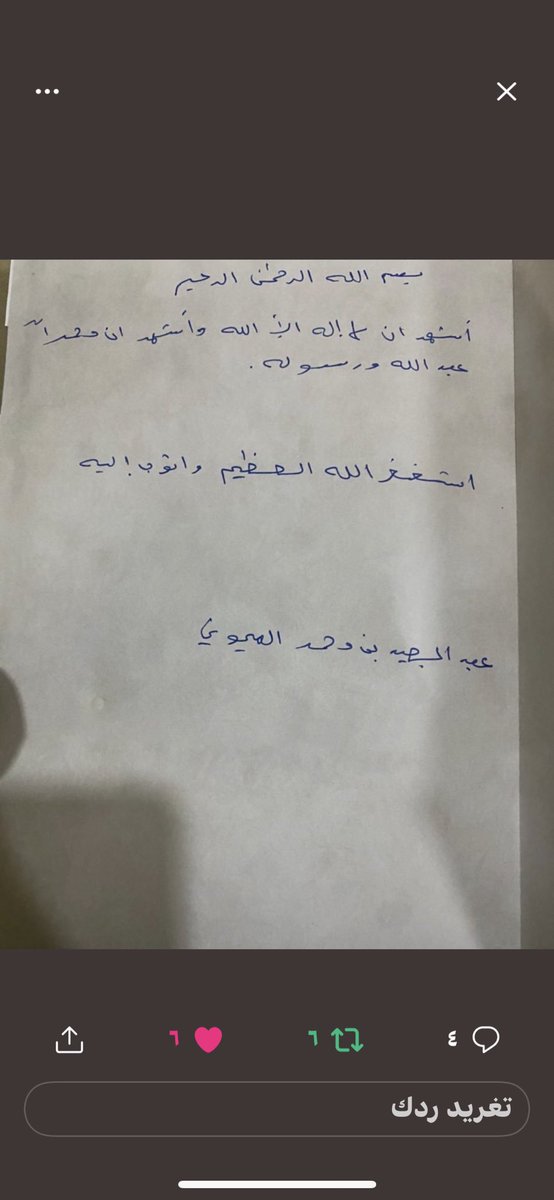 بسم الله الرحمن الرحيم
أشهد ان لا إله إلا الله وأشهد ان محمداً
عبد الله ورسوله .
استغفر الله العظيم واتوب إليه
عبد المجيد بن محمد العيوني
٤ ٦ ٦
تغريد ردك